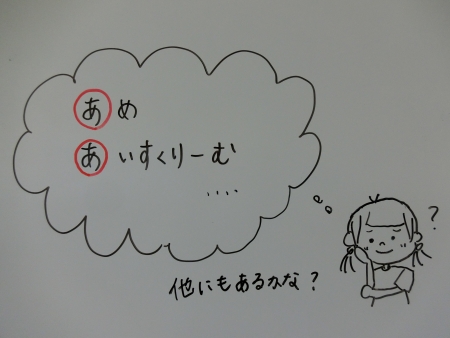 あめ
あいすくりーむ
....
?
他にもあるかな?